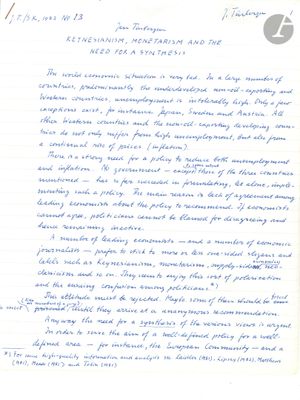 J.T./SK, 1982 No 13
J. Tinbergen
1
Jan Tinbergen
KEYNESIANISM, MONETARISM AND THE
NEED FOR A SYNTHESIS
The world economic situation is very bad. In a large number of
countries, predominantly the underdeveloped non-oil-exporting and
Western countries, unemployment is intolerably high. Only a few
exceptions exist, for instance Japan, Sweden and Austria. All
other Western countries and the non-oil-exporting developing coun-
tries do not only suffer from high unemployment, but also from
a continual rise of prices (inflation).
There is a strong need for a policy to reduce both unemployment
and inflation. No government — except those of the three countries
mentioned — has so far succeeded in formulating, let alone, imple-
menting such a policy. The main reason is lack of agreement among
leading economists about the policy to recommend. If economists
cannot agree, politicians cannot be blamed for disagreeing and
hence remaining inactive.
A number of leading economists — and a number of economic
journalists — prefer to stick to more or less one-sided slogans and
labels such as keynesianism, monetarism, supply-side economics, neo-
classicism and so on. They seem to enjoy this sort of polarisation
and the ensuing confusion among politicians *).
This attitude must be rejected. Maybe some of them should be
until they arrive at a unanimous recommendation.
Anyway the need for a synthesis of the various views is urgent.
In order to serve the aim of a well-defined policy for a well-
defined area — for instance, the European Community — and a
*) For some high-quality information and analysis see Laidler (1981), Lipsey (1981), Matthews
(1981), Meade (1981) and Tobin (1981).